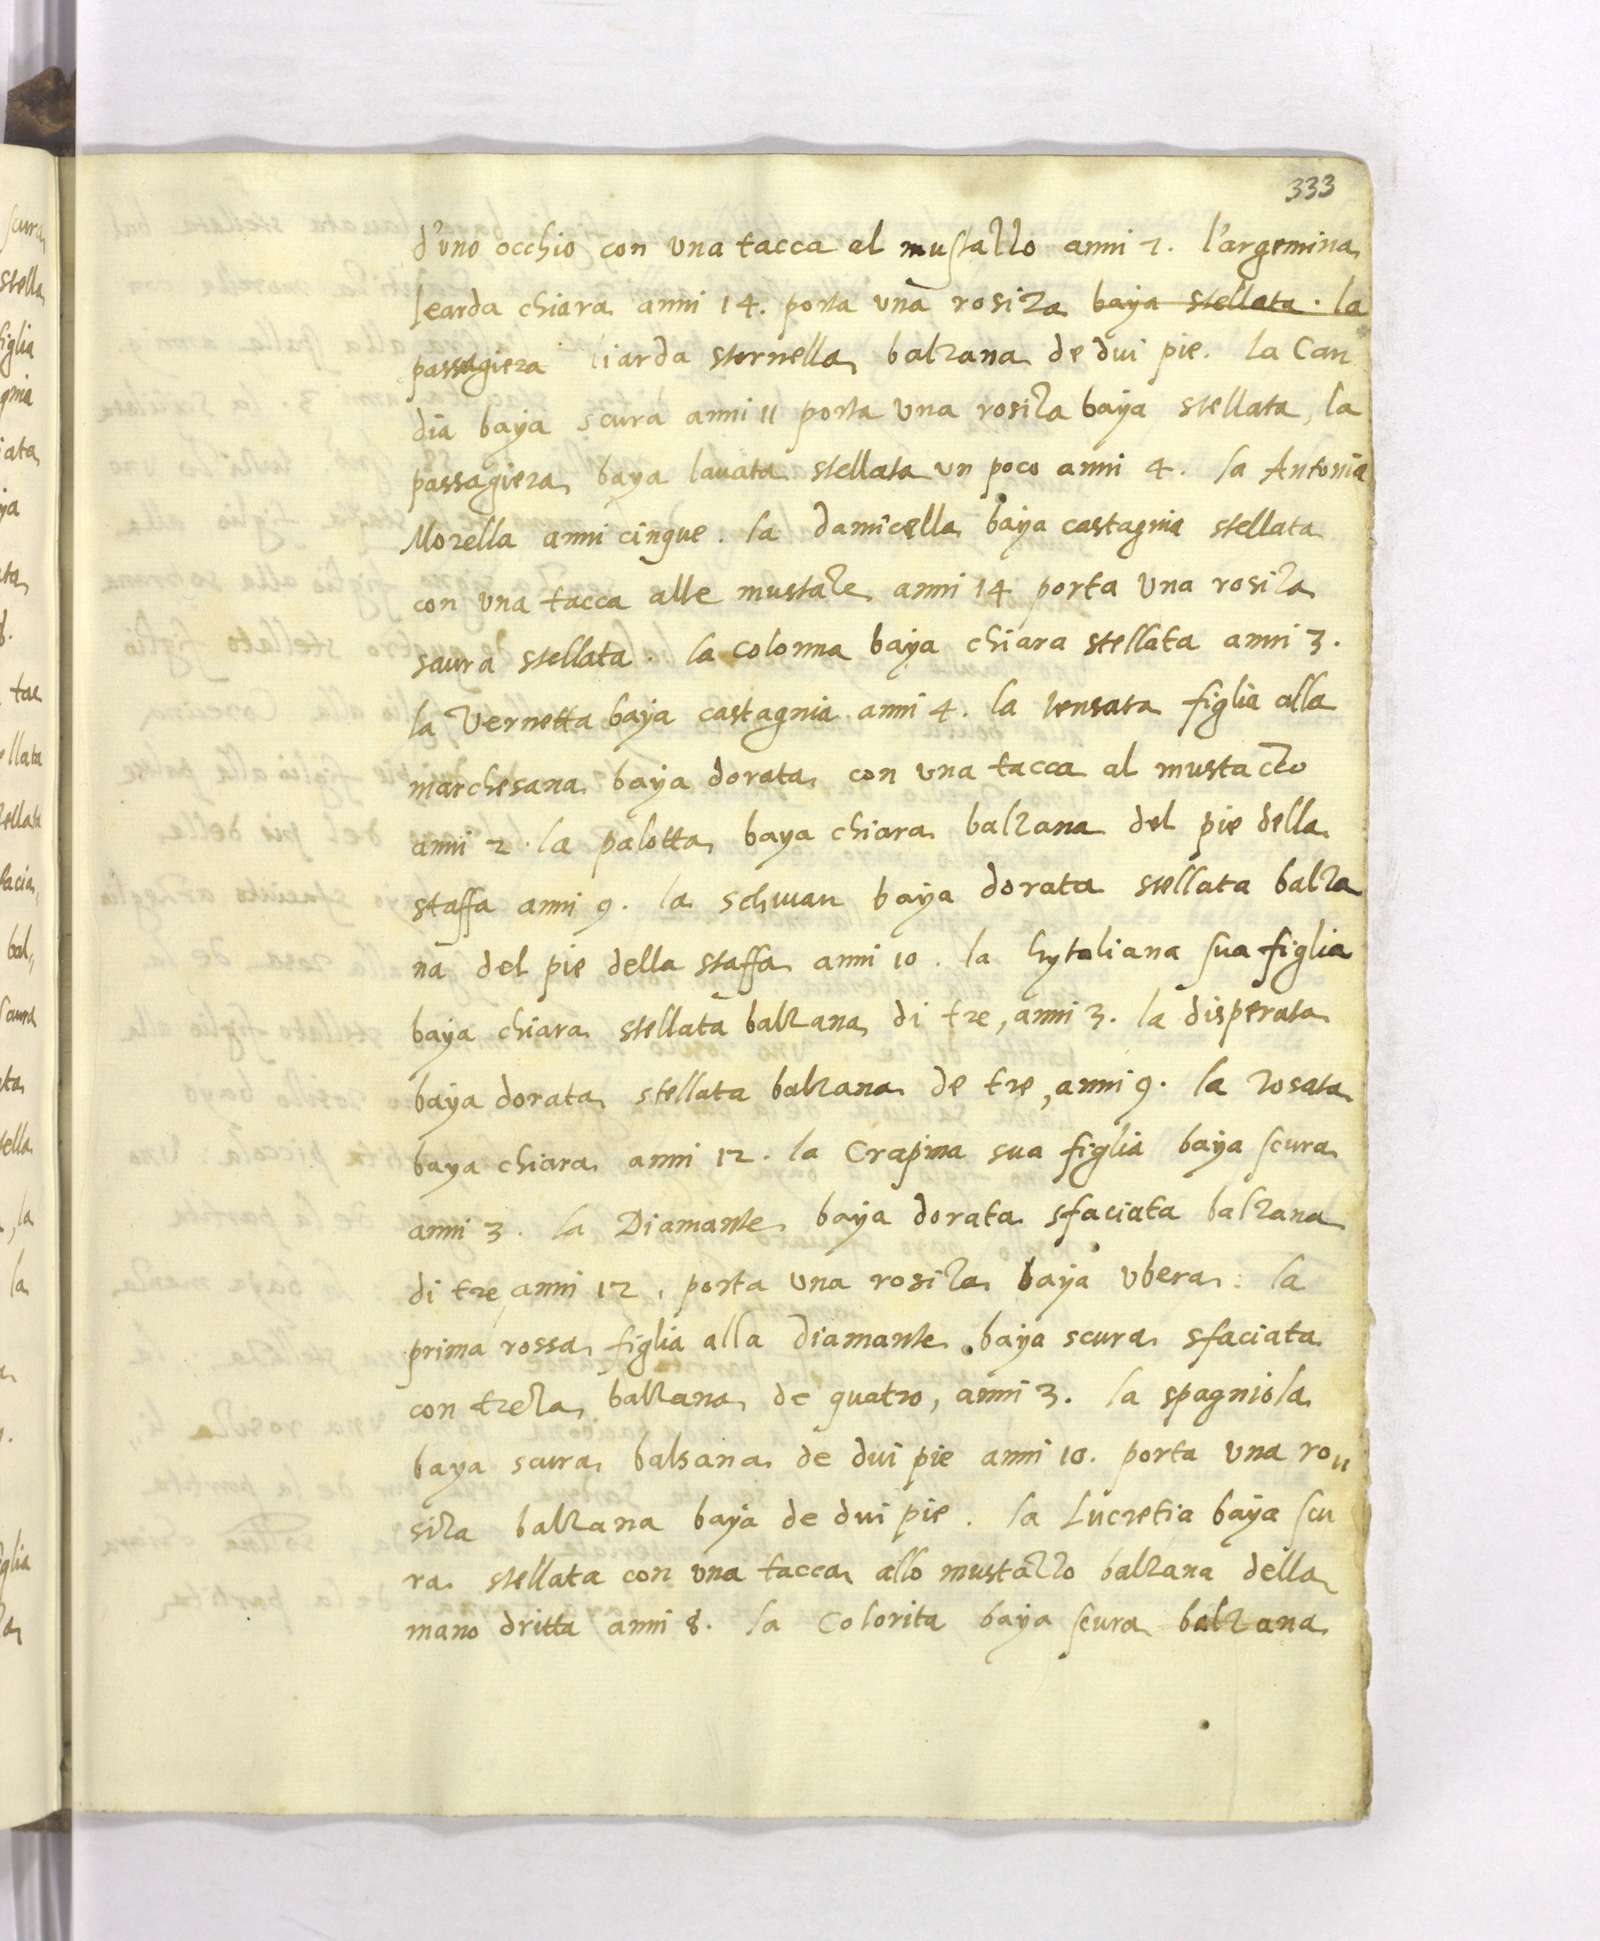 333
d'uno occhio con una tacca al mustazzo anni 2. l'argemina
learda chiara anni 14. porta una rosiza baya stellata. la
passagiera liarda stornella balzana de dui pie. la Can
dia baya scura anni 11 porta una rosiza baya stellata, la
passagiera baya lauata stellata un poco anni 4. la Antonia
Morella anni cinque. la damicella baya castagnia stellata
con una tacca alle mustaze anni 14 porta una rosiza
saura stellata. la colonna baya chiara stellata anni 3.
la Vernetta baya castagnia anni 4. la figlia alla
marchesana baya dorata con una tacca al mustaczo
anni 2. la palotta baya chiara balzana del pie della
staffa anni 9. la schwan baya dorata stellata balza
na del pie della staffa anni 10. la hytaliana sua figlia
baya chiara stellata balzana di tre, anni 3. la disperata
baya dorata stellata balzana de tre, anni 9. la rosata
baya chiara anni 12. la Crapina sua figlia baya scura
anni 3. la Diamante baya dorata sfaciata balzana
di tre, anni 12, porta una rosiza baya ubera: la
prima rossa figlia alla diamante baya scura sfaciata
con trezza balzana de quatro, anni 3. la spagniola
baya scura balsana de dui pie anni 10. porta una ro„
siza balzana baya de dui pie. la Lucretia baya scu
ra stellata con una tacca allo mustazzo balzana della
mano dritta anni 8. la Colorita baya scura balzana
scura
stella
figlia
gnia
iata
ya
ta
8.
tac
ellata
tellata
facia
bal„
saura
ta
tella
, la
la
figlia